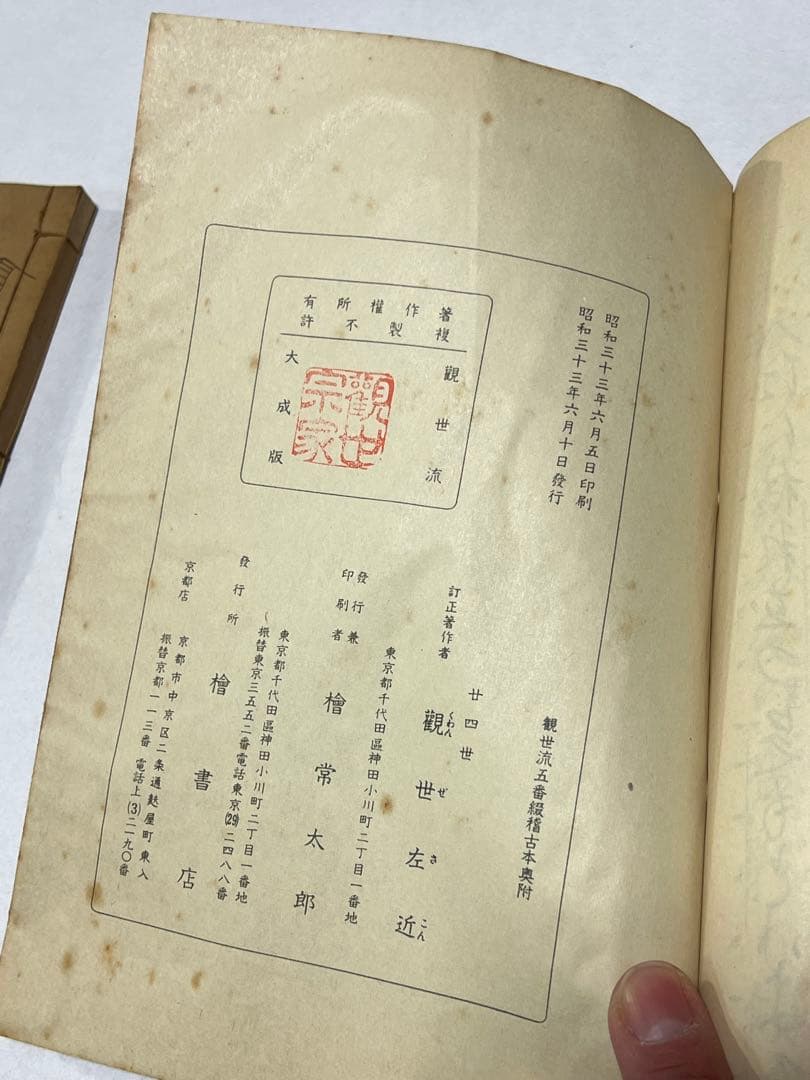 昭和三十三年六月五日印刷
昭和三十三年六月十日發行
著作權所有
複製不許
觀世流
大成版
觀世宗家
観世流五番綴稽古本奥附
訂正著作者
廿四世
觀世左近
くわんぜさこん
東京都千代田區神田小川町二丁目一番地
發行兼
印刷者
檜常太郎
東京都千代田區神田小川町二丁目一番地
振替東京三五五二番電話東京(29)二四八八番
發行所
檜書店
京都店
京都市中京区二条通麩屋町東入
振替京都一一三番 電話上(3)二一九〇番